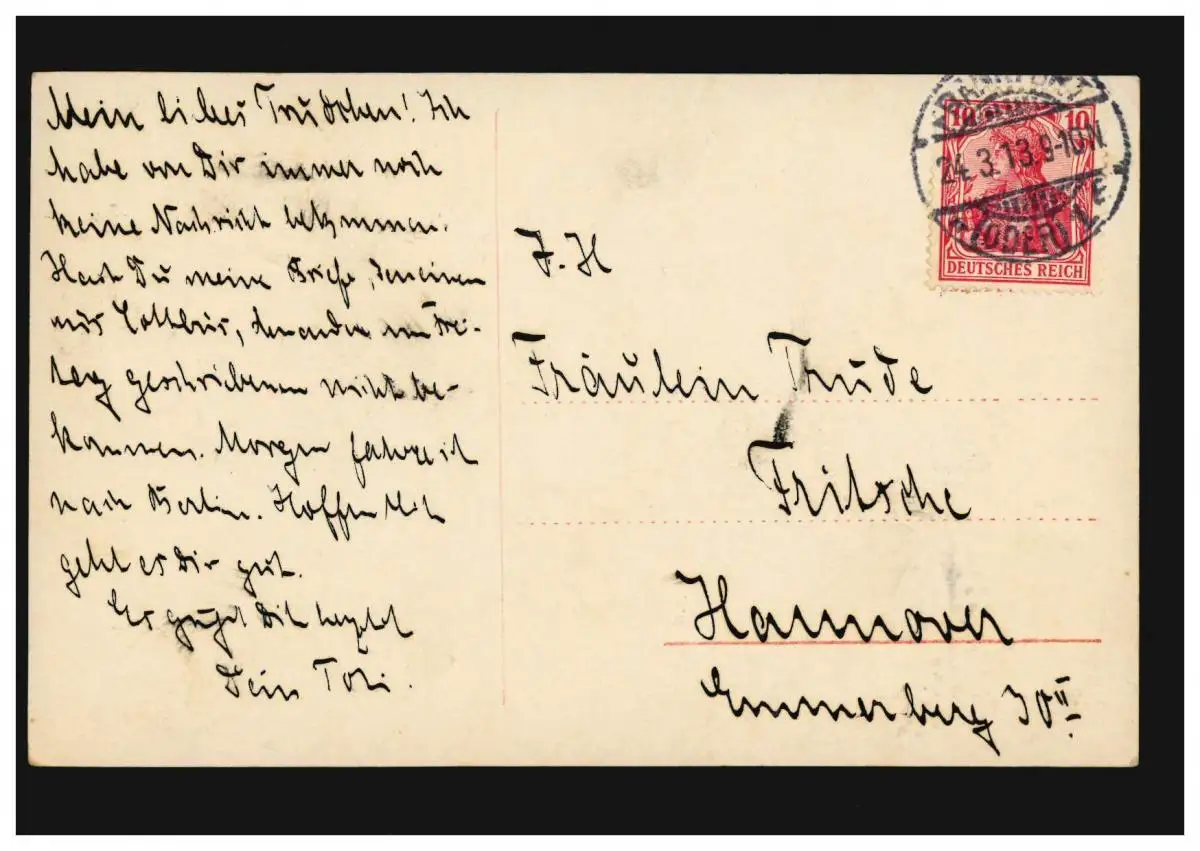 Mein liebes Trudchen! Ich
habe von Dir immer noch
keine Nachricht bekommen.
Hast Du meine Briefe, den einen
aus Cottbus, den anderen am Frei-
tag geschriebenen nicht be-
kommen. Morgen fahre ich
nach Berlin. Hoffentlich
geht es Dir gut.
Es grüßt Dich herzlich
Dein
F. H
Fräulein Trude
Fritsche
Hannover
Emmerberg 30 II
10 10
FRANKFURT
24.3.13.9-10N.
(ODER) 1 e
DEUTSCHES REICH